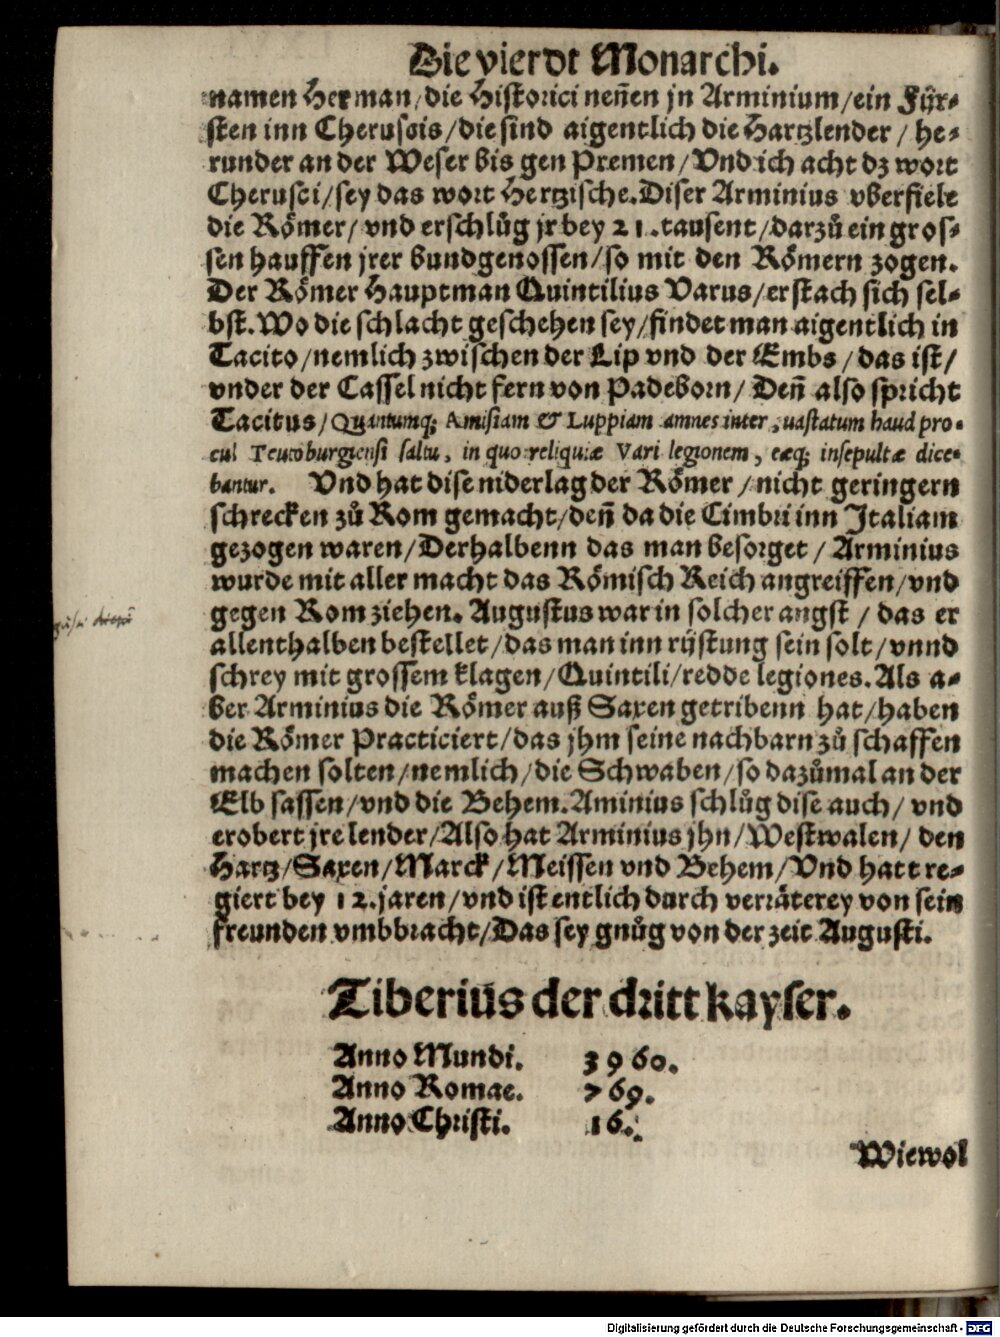 Die vierdt Monarchi.
namen Herman/die Historici neñen jn Arminium/ein Für⸗
sten inn Cheruscis/die sind aigentlich die Hartzlender / he⸗
runder an der Weser bis gen Premen/Vnd ich acht dz wort
Cherusci/sey das wort Hertzische.Diser Arminius vberfiele
die Rőmer/ vnd erschlůg jr bey 21.tausent/darzů ein gros⸗
sen hauffen jrer bundgenossen/so mit den Rőmern zogen.
Der Rőmer Hauptman Quintilius Varus/erstach sich sel⸗
bst.Wo die schlacht geschehen sey/findet man aigentlich in
Tacito/nemlich zwischen der Lip vnd der Embs/das ist/
vnder der Cassel nicht fern von Padeborn/ Deñ also spricht
Tacitus/Quantumq; Amisiam & Luppiam amnes inter, uastatum haud pro⸗
cul Teutoburgiensi saltu, in quo reliquiæ Vari legionem, eæq; insepultæ dice⸗
bantur. Vnd hat dise niderlag der Rőmer/nicht geringern
schrecken zů Rom gemacht/deñ da die Cimbri inn Italiam
gezogen waren/Derhalbenn das man besorget/Arminius
wurde mit aller macht das Rőmisch Reich angreiffen/vnd
gegen Rom ziehen. Augustus war in solcher angst/das er
allenthalben bestellet/das man inn rüstung sein solt/vnnd
schrey mit grossem klagen/Quintili/redde legiones.Als a⸗
ber Arminius die Rőmer auß Saxen getribenn hat/haben
die Rőmer Practiciert/das jhm seine nachbarn zů schaffen
machen solten/nemlich/die Schwaben/so dazůmal an der
Elb sassen/vnd die Behem.Aminius schlůg dise auch/ vnd
erobert jre lender/Also hat Arminius jhn/Westwalen/ den
Hartz/Saxen/Marck/Meissen vnd Behem/Vnd hatt re⸗
giert bey 12.jaren/vnd ist entlich durch verräterey von sein
freunden vmbbracht/Das sey gnůg von der zeit Augusti.
Tiberius der dritt kayser.
Anno Mundi. 3960.
Anno Romae. 769.
Anno Christi. 16.
Wiewol
Digitalisierung gefördert durch die Deutsche Forschungsgemeinschaft - DFG